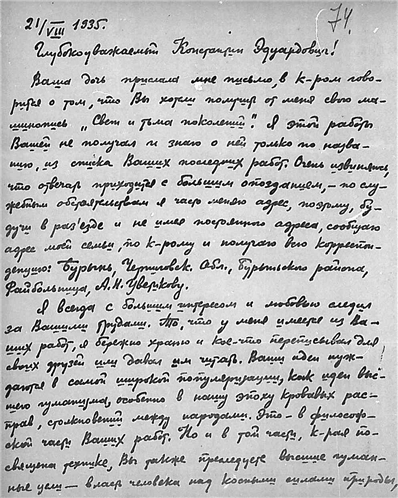 21/VIII 1935.
74.
Глубокоуважаемый Константин Эдуардович!
Ваша дочь прислала мне письмо, в к-ром гово-
рится о том, что Вы хотели получить от меня свою ма-
шинопись „Свет и тьма поколений". Я этой работы
Вашей не получал и знаю о ней только по назва-
нию, из списка Ваших последних работ. Очень извиняюсь,
что отвечать приходится с большим опозданием, – по слу-
жебным обстоятельствам я часто меняю адрес, поэтому, бу-
дучи в раз'езде и не имея постоянного адреса, сообщаю
адрес моей семьи, по к-рому и получаю всю корреспон-
денцию: Бурынь, Черниговск. Обл., Бурынского района,
Райбольница, А.И. Уверкову.
Я всегда с большим интересом и любовью следил
за Вашими трудами. То, что у меня имеется из Ва-
ших работ, я бережно храню и кое-что переписывал для
своих друзей или давал им читать. Ваши идеи нуж-
даются в самой широкой популяризации, как идеи выс-
шего гуманизма, особенно в нашу эпоху кровавых рас-
прав, столкновений между народами. Это – в философ-
ской части Ваших работ. Но и в той части, к-рая по-
священа технике, Вы также преследуете высшие гуман-
ные цели – власть человека над косными силами природы,